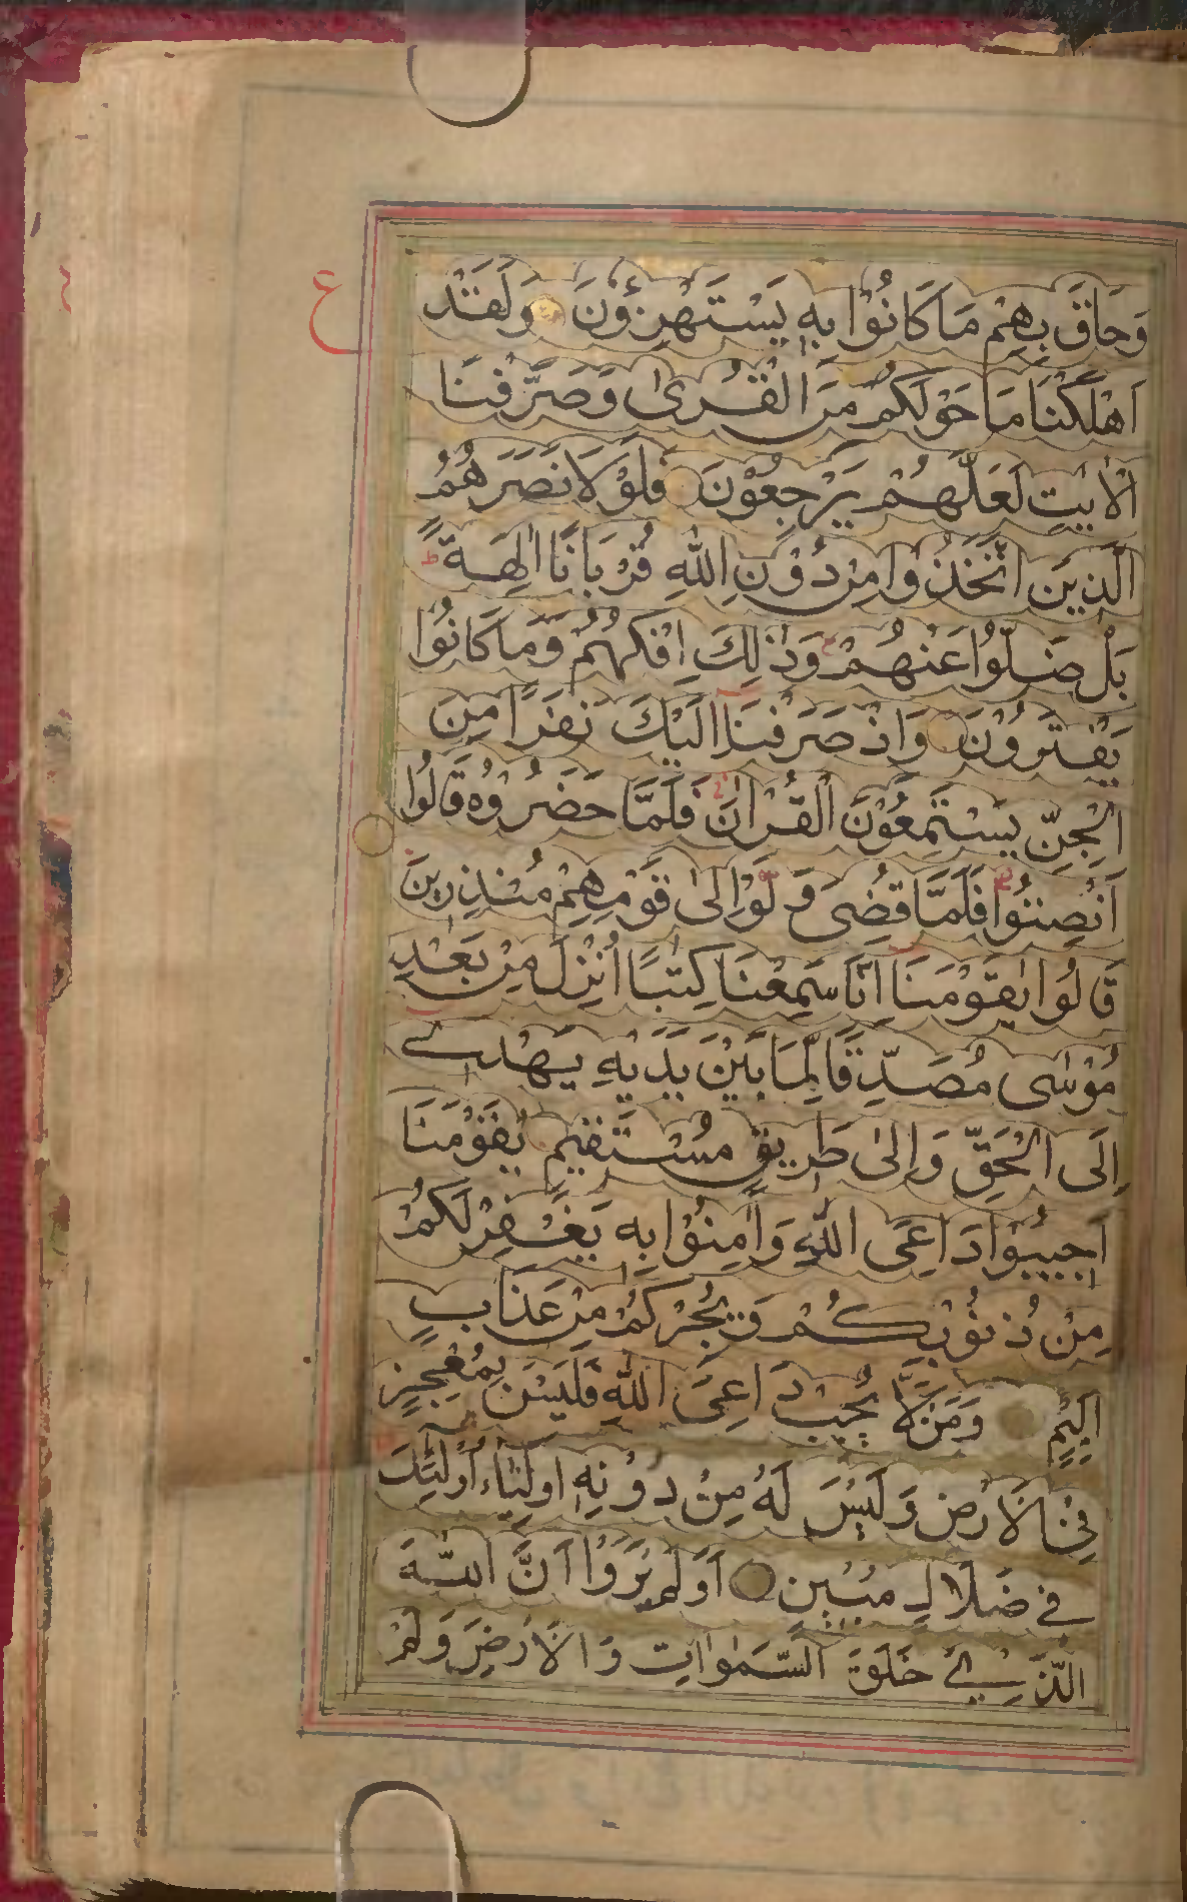 ع
وَحَاقَ بِهِمْ مَا كَانُوْا بِهٖ يَسْتَهْزِؤُنَ وَلَقَدْ
اَهْلَكْنَا مَا حَوْلَكُمْ مِنَ الْقُرٰى وَصَرَّفْنَا
الْاٰيٰتِ لَعَلَّهُمْ يَرْجِعُوْنَ فَلَوْلَا نَصَرَهُمُ
الَّذِيْنَ اتَّخَذُوْا مِنْ دُوْنِ اللّٰهِ قُرْبَانًا اٰلِهَةً ط
بَلْ ضَلُّوْا عَنْهُمْ ج وَذٰلِكَ اِفْكُهُمْ وَمَا كَانُوْا
يَفْتَرُوْنَ وَاِذْ صَرَفْنَا اِلَيْكَ نَفَرًا مِنَ
الْجِنِّ يَسْتَمِعُوْنَ الْقُرْاٰنَ ج فَلَمَّا حَضَرُوْهُ قَالُوْا
اَنْصِتُوْا ج فَلَمَّا قُضِىَ وَلَّوْا اِلٰى قَوْمِهِمْ مُنْذِرِيْنَ
قَالُوْا يٰقَوْمَنَا اِنَّا سَمِعْنَا كِتٰبًا اُنْزِلَ مِنْ بَعْدِ
مُوْسٰى مُصَدِّقًا لِّمَا بَيْنَ يَدَيْهِ يَهْدِىْ
اِلَى الْحَقِّ وَاِلٰى طَرِيْقٍ مُسْتَقِيْمٍ يٰقَوْمَنَا
اَجِيْبُوْا دَاعِىَ اللّٰهِ وَاٰمِنُوْا بِهٖ يَغْفِرْ لَكُمْ
مِنْ ذُنُوْبِكُمْ وَيُجِرْكُمْ مِنْ عَذَابٍ
اَلِيْمٍ وَمَنْ لَّا يُجِبْ دَاعِىَ اللّٰهِ فَلَيْسَ بِمُعْجِزٍ
فِى الْاَرْضِ وَلَيْسَ لَهٗ مِنْ دُوْنِهٖ اَوْلِيَاءُ اُولٰٓئِكَ
فِى ضَلَالٍ مُبِيْنٍ اَوَلَمْ يَرَوْا اَنَّ اللّٰهَ
الَّذِىْ خَلَقَ السَّمٰوَاتِ وَالْاَرْضَ وَلَمْ